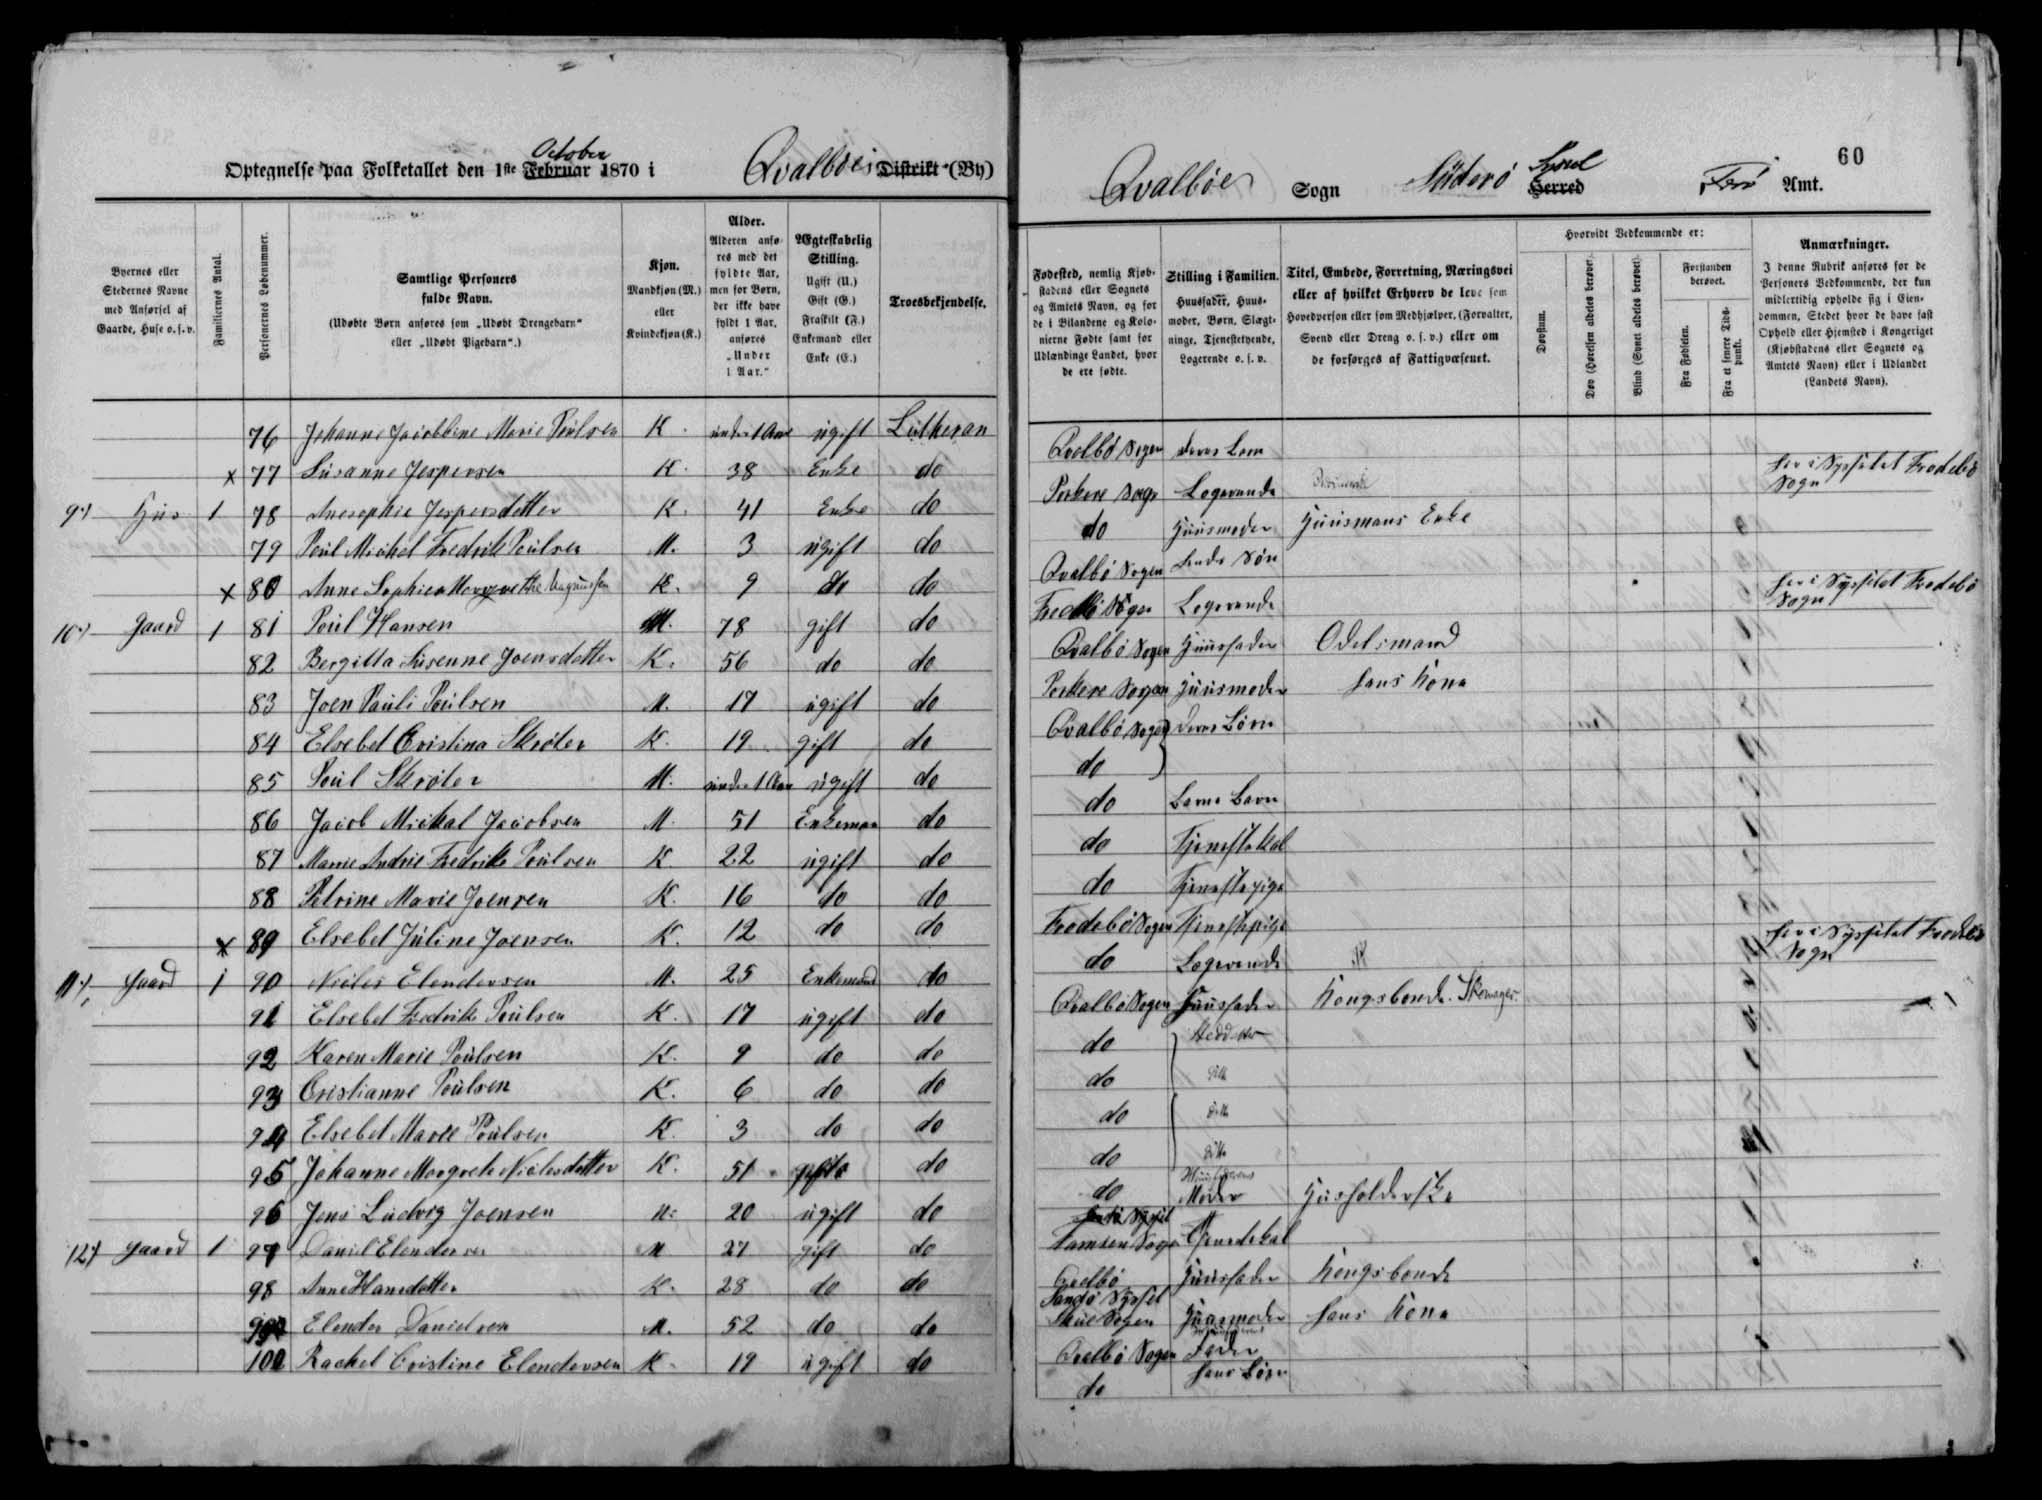 Optegnelse paa Folketallet den 1ste Februar October 1870 i Qvalbøes Distrikt (By)
Byernes eller Stedernes Navne med Anførsel af Gaarde, Huse o. s. v.
Familiernes Antal.
Personernes Løbenummer.
Samtlige Personers fulde Navn.
(Udøbte Børn anføres som „Udøbt Drengebarn“ eller „Udøbt Pigebarn“.)
Kjøn. Mandkjøn (M.) eller Kvindekjøn (K.)
Alder. Alderen anføres med det fyldte Aar, men for Børn, der ikke have fyldt 1 Aar, anføres „Under 1 Aar.“
Ægteskabelig Stilling. Ugift (U.) Gift (G.) Fraskilt (F.) Enkemand eller Enke (E.)
Troesbekjendelse.
76 Johanne Jacobbine Marie Poulsen K. under 1 Aar ugift Lutheran
x 77 Susanne Jespersen K. 38 Enke do
9) Hus 1 78 Anesophie Jespersdatter K. 41 Enke do
79 Poul Michel Fredrik Poulsen M. 3 ugift do
x 80 Anne Sophie Magnussen K. 9 do do
10) Gaard 1 81 Poul Hansen M. 78 gift do
82 Bergitta Susenne Joensdatter K. 56 do do
83 Joen Pauli Poulsen M. 17 ugift do
84 Elsebet Cristina Skrøter K. 19 gift do
85 Poul Skrøter M. under 1 Aar ugift do
86 Jacob Michal Jacobsen M. 51 Enkeman do
87 Marie Andrie Fredrikke Poulsen K 22 ugift do
88 Petrine Marie Joensen K. 16 do do
x 89 Elsebet Juline Joensen K. 12 do do
11) Gaard 1 90 Niclas Elendersen M. 25 Enkemand do
91 Elsebet Fredrikke Poulsen K. 17 ugift do
92 Karen Marie Poulsen K. 9 do do
93 Cristianne Poulsen K. 6 do do
94 Elsebet Marie Poulsen K. 3 do do
95 Johanne Margrete Niclasdatter K. 51 do
96 Jens Ludvig Joensen M. 20 ugift do
12) Gaard 1 97 Daniel Elendersen M 27 gift do
98 Anne Hansdatter K. 28 do do
99 Elender Danielsen M. 52 do do
100 Rachel Cristine Elendersen K. 19 ugift do
60
Qvalbøe Sogn Süderø Herred Syssel Ferø Amt.
Fødested, nemlig Kjøbstadens eller Sognets og Amtets Navn, og for de i Bilandene og Kolonierne Fødte samt for Udlændinge Landet, hvor de ere fødte.
Stilling i Familien. Huusfader, Huusmoder, Børn, Slægtninge, Tjenestetyende, Logerende o. s. v.
Titel, Embede, Forretning, Næringsvei eller af hvilket Erhverv de leve som Hovedperson eller som Medhjælper, (Forvalter, Svend eller Dreng o. s. v.) eller om de forsørges af Fattigvæsenet.
Hvorvidt Vedkommende er:
Døvstum.
Døv (Hørelsen aldeles berøvet).
Blind (Synet aldeles berøvet).
Forstanden berøvet.
Fra Fødselen.
Fra et senere Tidspunkt.
Anmærkninger.
I denne Rubrik anføres for de Personers Vedkommende, der kun midlertidig opholde sig i Eiendommen, Stedet hvor de have fast Ophold eller Hjemsted i Kongeriget (Kjøbstadens eller Sognets og Amtets Navn) eller i Udlandet (Landets Navn).
Qvalbø Sogen deres Barn
Porkere Sogn Logerende her i Sysselet Frodebø Sogn
do Huusmoder Huusmans Enke
Qvalbø Sogen hendes Søn
Frodebø Sogen Logerende her i Sysselet Frodebø Sogn
Qvalbø Sogen Huusfader Odelsmand
Porkere Sogen Huusmoder hans Kone
Qvalbø Sogen deres Børn
do
do Barne Barn
do Tjenestekal
do Tjenestepige
Frodebø Sogen Tjenestepige
do Logerende her i Sysselet Frodebø Sogn
Qvalbø Sogen Huusfader Kongsbonde.
do
do ditto
do ditto
do ditto
do Huusfaderens Moder Husholderske
Sandø Syssel Sogn Tjenestekal
Qvalbø Huusfader Kongsbonde
Sandø Syssel Skue Sogen Huusmoder hans Kone
Qvalbø Sogen Fader
do hans Børn